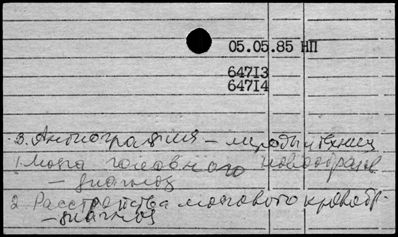 05.05.85 НП
64713
64714
3. Ангиография — методы и техник
1. Мозга головного новообразов.
— диагноз
2 Расстройства мозгового кровообр.
— диагноз